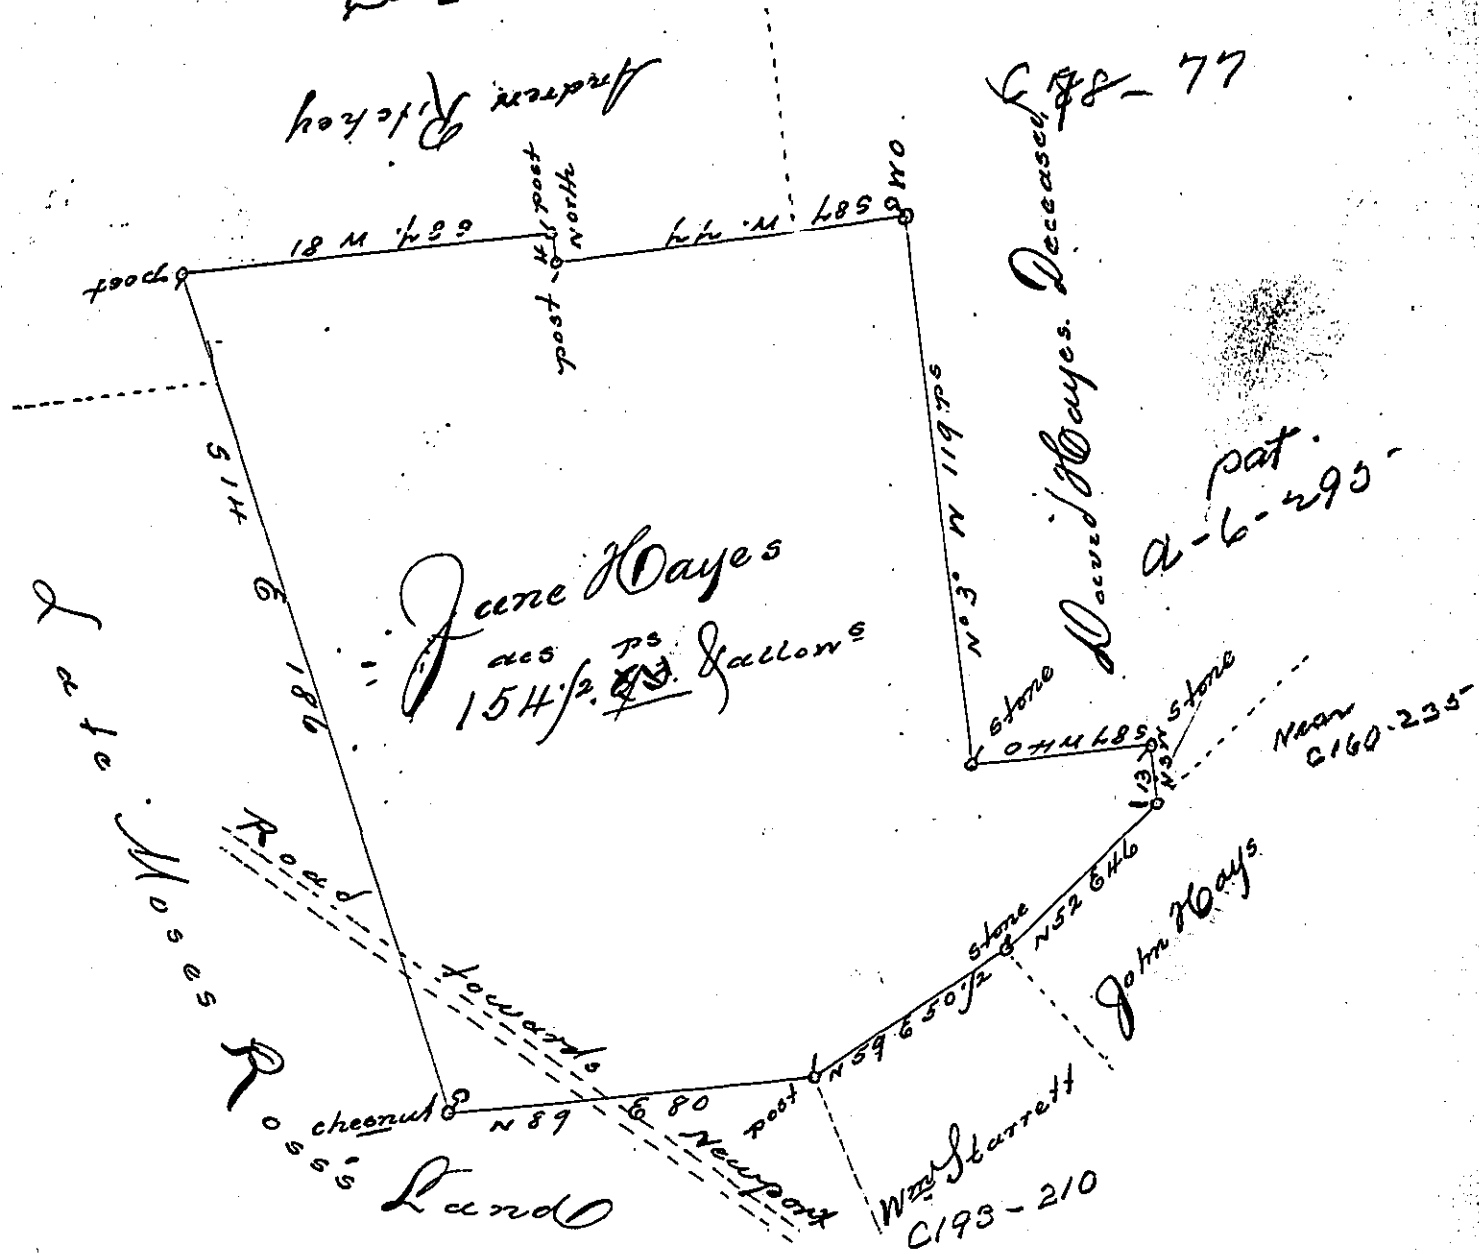 Andrew Ritchey
C 78 - 77
post
S 84. W 81
post
North
4
post
S 87 W. 77
W O
N° 3° W 119 ps
David Hayes. Deceased
pat.
a-6-295-
S 14 E 186
Jane Hayes
acs ps
154 1/2. Gallows
stone
S 87 W 40
stone
N 3 W
13
Near
C160-235-
N 52 E 46
John Hays
stone
N 59 E 50 1/2
post
Wm Starrett
C193-210
N 89 E 80
chesnut
Road towards Newport
Late Moses Ross's Land